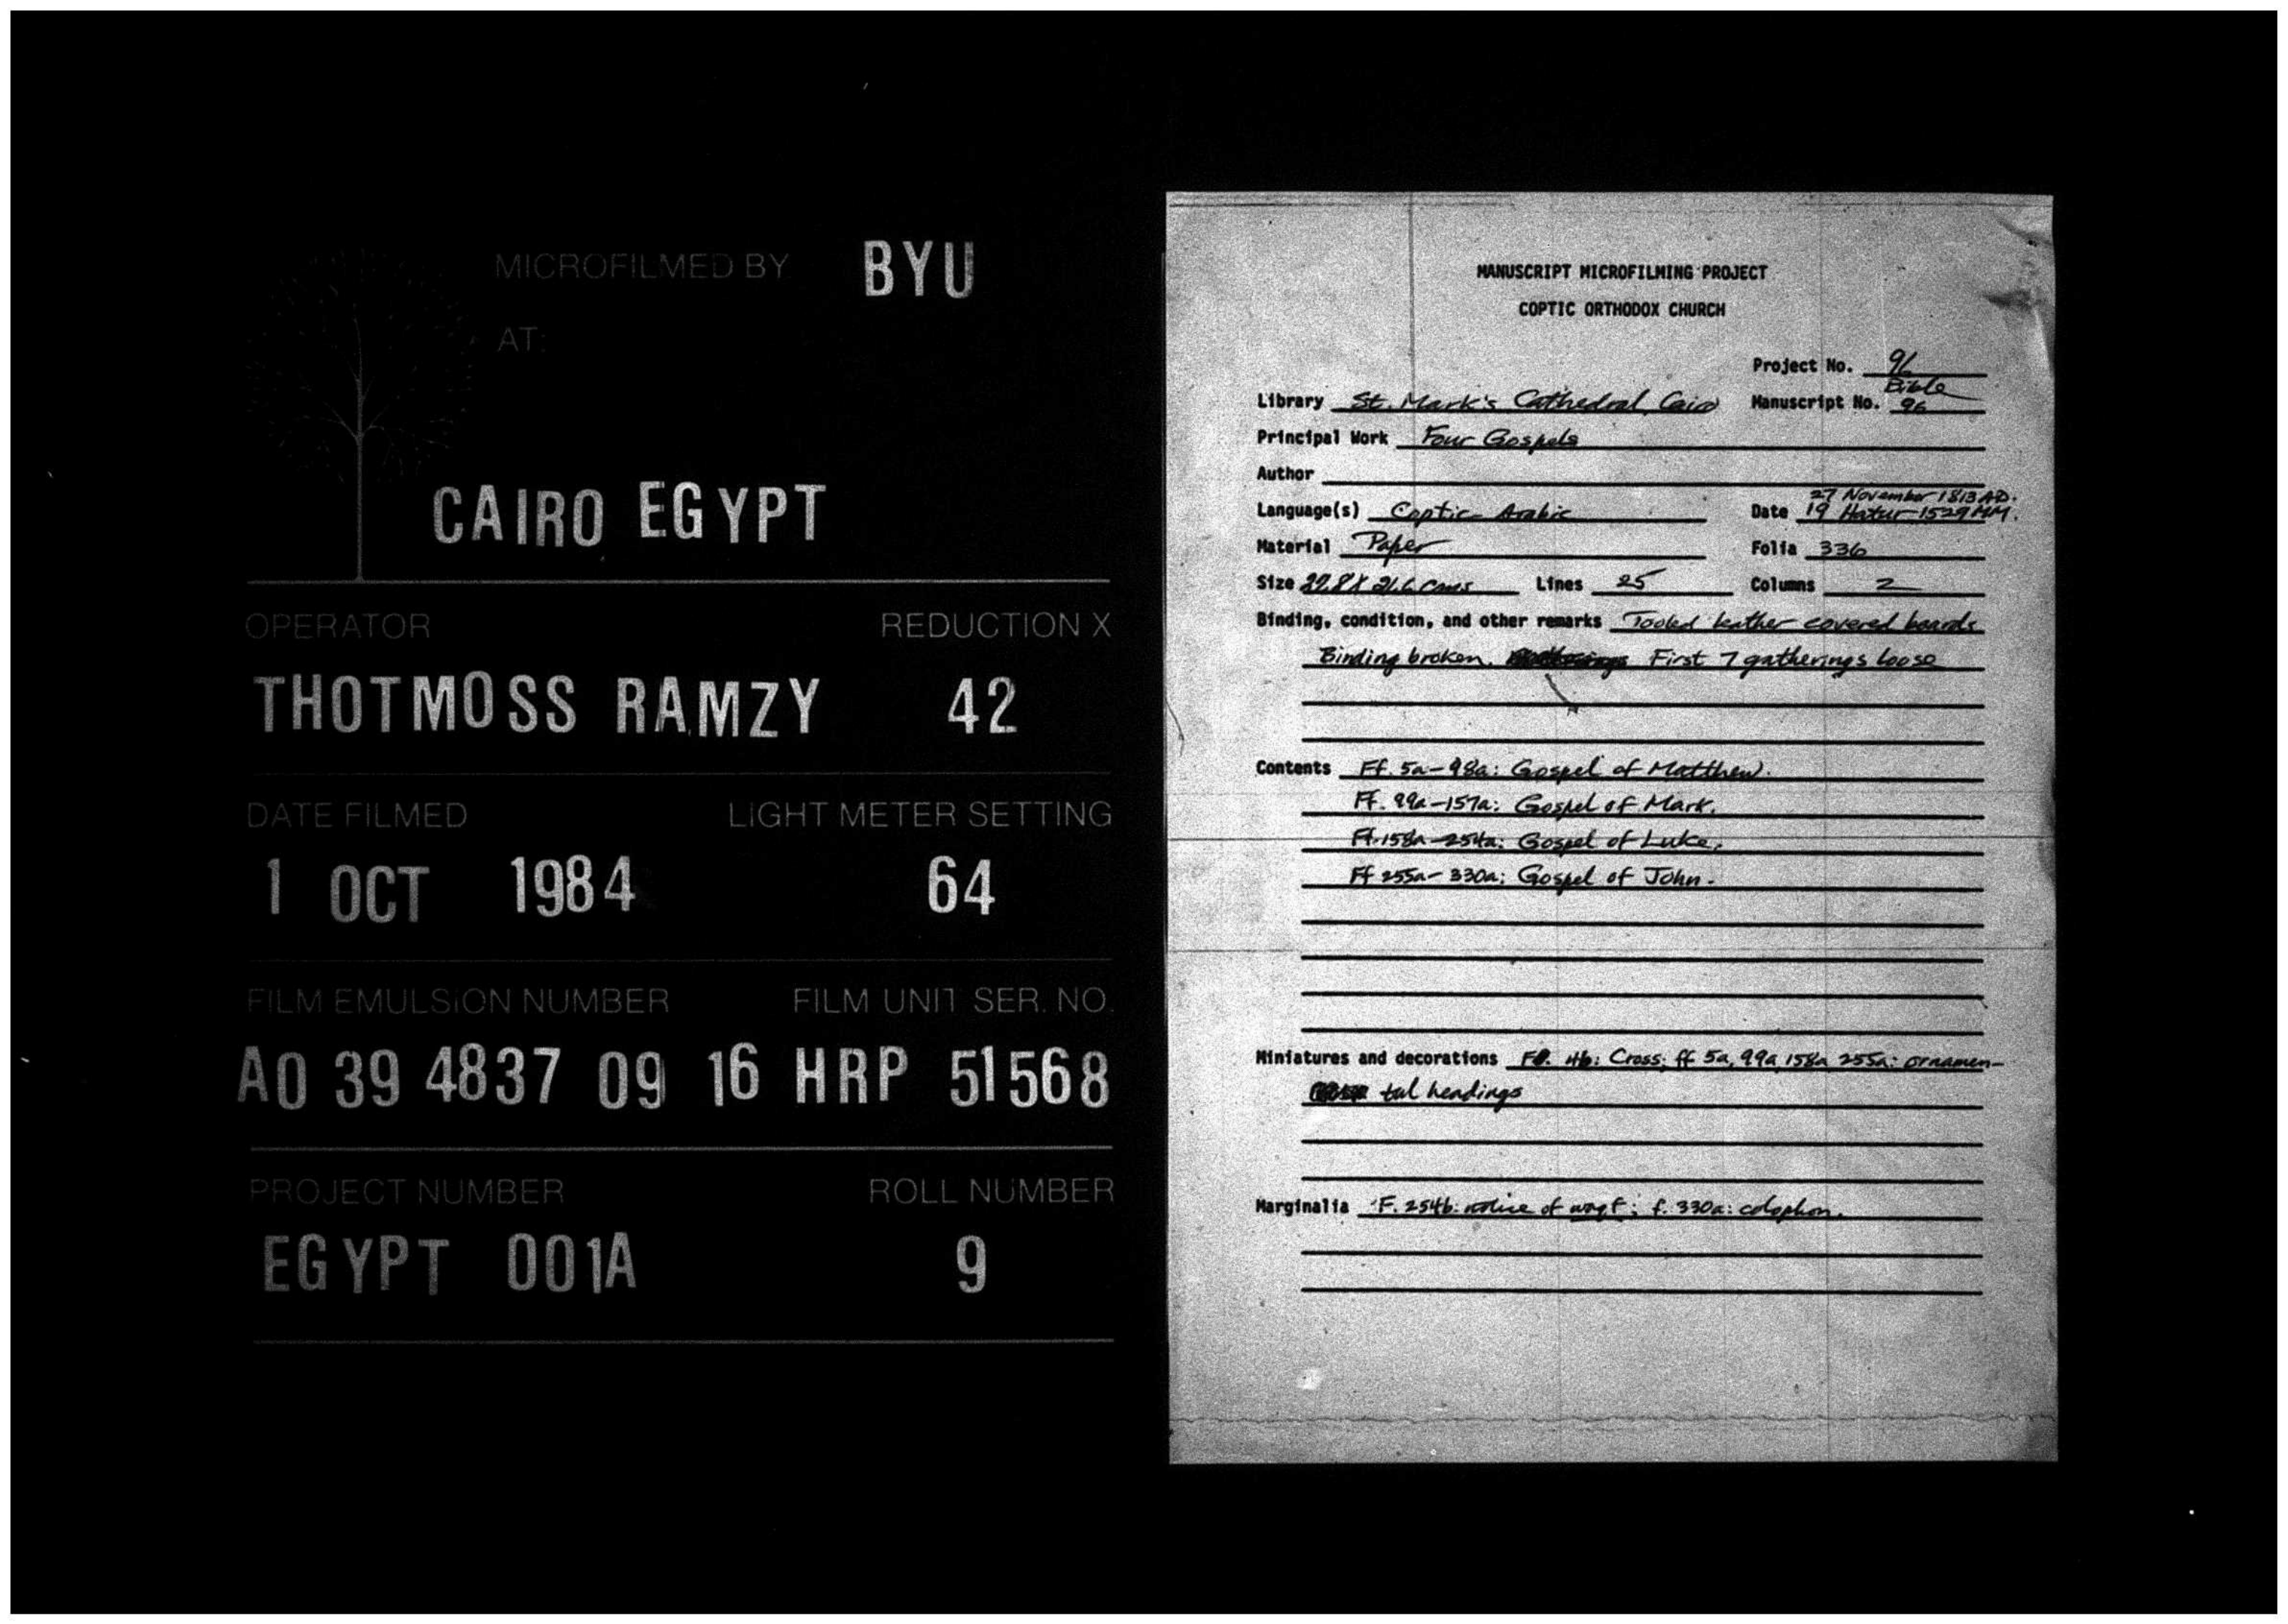 MICROFILMED BY BYU
AT:
CAIRO EGYPT
OPERATOR REDUCTION X
THOTMOSS RAMZY 42
DATE FILMED LIGHT METER SETTING
1 OCT 1984 64
FILM EMULSION NUMBER FILM UNIT SER. NO.
A0 39 4837 09 16 HRP 51568
PROJECT NUMBER ROLL NUMBER
EGYPT 001A 9
MANUSCRIPT MICROFILMING PROJECT
COPTIC ORTHODOX CHURCH
Project No. 96
Bible
Library St. Mark's Cathedral, Cairo Manuscript No. 96
Principal Work Four Gospels
Author
27 November 1813 AD.
Language(s) Coptic-Arabic Date 19 Hatur 1529 MM.
Material Paper Folia 336
Size X 21.6 cms Lines 25 Columns 2
Binding, condition, and other remarks Tooled leather covered boards
Binding broken. First 7 gatherings loose
Contents Ff. 5a-98a: Gospel of Matthew.
Ff. 99a-157a: Gospel of Mark.
Ff. 158a-254a: Gospel of Luke.
Ff 255a-330a: Gospel of John.
Miniatures and decorations F. 4b: Cross; ff 5a, 99a, 158a 255a: ornamen-
tal headings
Marginalia F. 254b: notice of waqf; f. 330a: colophon.